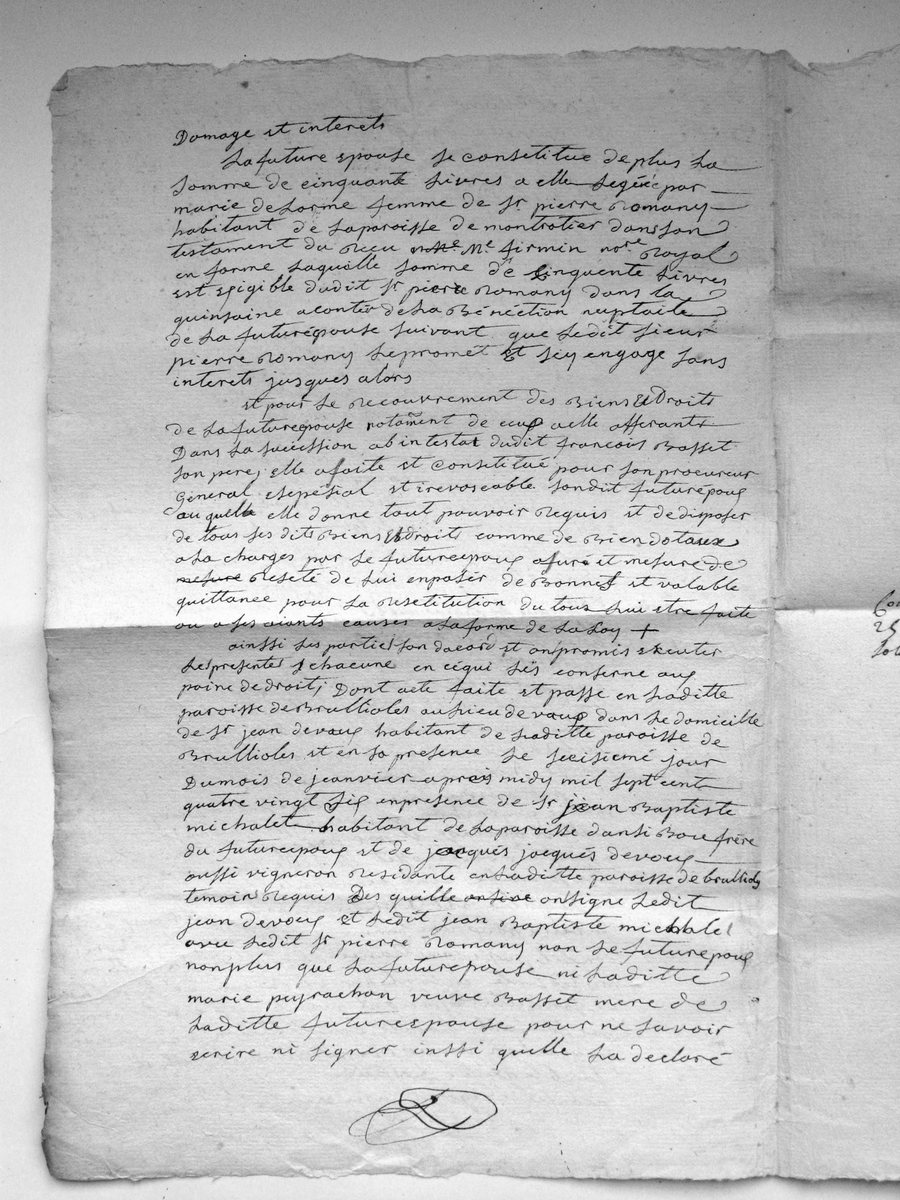 Domage et interets
La future epouse se constitue de plus La
Somme de cinquante Livres a elle Legéé par
marie deLorme femme de Sr pierre Romany
habitant de Laparoisse de montrotier dans son
testament du Recu Me firmin nore Royal
en forme Laquelle Somme de Cinquente Livres
est exigible dudit Sr pierre Romany dans la
quinsaine aconter de La Bénéction nuptialle
de La futurépouse suivant que Ledit sieur
pierre Romany Lepromet Et s'ey engage sans
interets jusques alors
et pour Le recouvrement des Biens Et Droits
de La futurepouse notamt de ceux aelle afferants
Dans La succession abintestat dudit francois Basset
son pere; elle afaite et constitué pour son procureur
Géneral espésial et irevoscable sondit futurépoux
auquelle elle donne tout pouvoir Requis et de disposer
de tous ses dits Biens Et droits comme de Bien dotaux
a La charges par Le futurepoux asuré et mesure de
mesure Reseté de Lui enpaser de Bonnes et valable
quittance pour La Restitution du tous Lui etre faite
ou a ses aiants causes aLaforme de La Loy +
ainssi Les parties son dacord et onpromis exeuter
Les presentes chacune en cequi Les conserne aux
paine de droit; Dont acte faite et passé en Laditte
paroisse de Brullioles au Lieu devaux dans Le domicille
de Sr jean devaux habitant de Laditte paroisse de
Brullioles et en sa presence Le seisiemé jour
Dumois de jeanvier apres midy mil sept cent
quatre vingt six enpresence de Sr jean Baptiste
michalet habitant de Laparoisse danse Boue frère
du futurepoux et de jacques devoux
aussi vigneron residante en Laditte paroisse de brullioles
temoin Requis Des quille onsigne Ledit
jean devoux et Ledit jean Baptiste michalet
avec Ledit Sr pierre Romany non Le futurepoux
nonplus que La futurepouse ni Laditte
marie peyrachon veuve Basset mere de
Laditte futurespouse pour ne savoir
ecrire ni signer inssi quelle La declaré